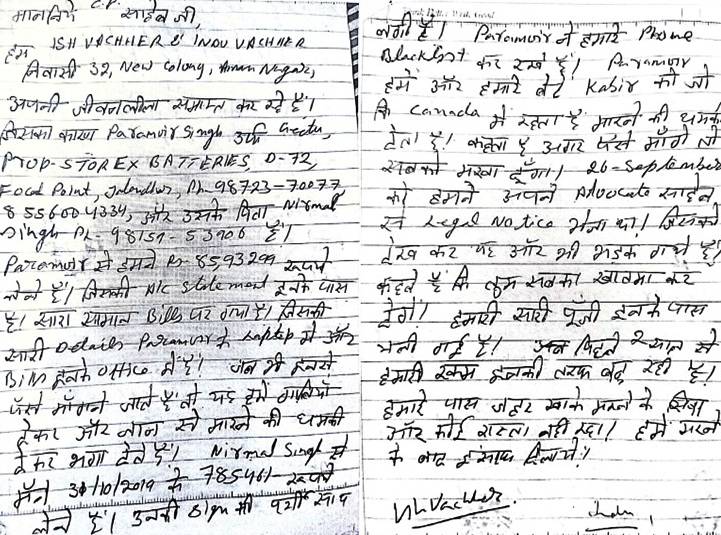 माननिये साहेब जी,
हम ISH VACHHER & INDU VACHHER
निवासी 32, New Colony, Aman Nagar,
अपनी जीवनलीला समाप्त कर रहे हैं।
जिसका कारण Paramvir Singh उर्फ
PROP-STOREX BATTERIES, D-72,
Focal Point, Jalandhar, Ph. 98723-70077,
8556004334, और उसके पिता Nirmal
Singh Ph- 98151-53906 हैं।
Paramvir से हमने Rs- 8593299 रूपये
लेने हैं। जिसकी A/c statement इनके पास
है। सारा सामान Bills पर गया है। जिसकी
सारी Details Paramvir के Laptop में और
Bills इनके office में हैं। जब भी इनसे
पैसे माँगने जाते हैं तो यह हमें गालियाँ
देकर और जान से मारने की धमकी
देकर भगा देते हैं। Nirmal Singh से
मैंने 31/10/2019 के 785461 रूपये
लेने हैं। उनकी sign भी पर्ची साथ
लगी है। Paramvir ने हमारे Phone
Blacklist कर रखे हैं। Paramvir
हमें और हमारे बेटे Kabir को जो
कि Canada में रहता है मारने की धमकी
देता है। कहता है अगर पैसे माँगे तो
सबको मरवा दूँगा। 26-September
को हमने अपने Advocate साहेब
से Legal Notice भेजा था। जिसको
देख कर यह और भी भड़क गये हैं।
कहते हैं कि तुम सबका खातमा कर
देंगे। हमारी सारी पूँजी इनके पास
चली गई है। पिछले 2 साल से
हमारी रकम इनकी तरफ बढ़ रही है।
हमारे पास जहर खाके मरने के सिवा
और कोई रास्ता नहीं रहा। हमें मरने
के बाद इन्साफ दिलायें।
Ish Vachher Indu